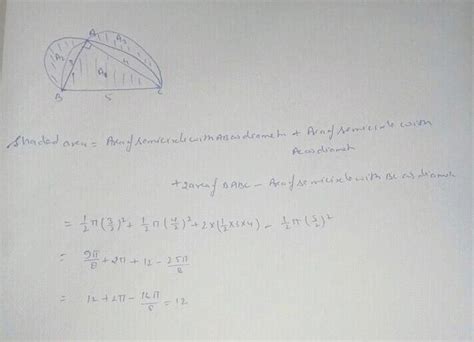 A1
A2
A3
A4
3
4
B
5
C
Shaded area = Area of semicircle with AB as diameter + Area of semicircle with
AC as diameter
+ 2 area of ΔABC - Area of semicircle with BC as diameter
= 1/2 π(3/2)² + 1/2 π(4/2)² + 2×(1/2×3×4) - 1/2 π(5/2)²
= 9π/8 + 2π + 12 - 25π/8
= 12 + 2π - 16π/8 = 12